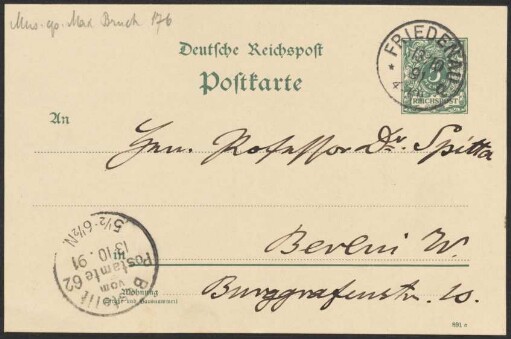 Mus. ep. Max Bruch 176
Deutsche Reichspost
Postkarte
FRIEDENAU
13 10
91
REICHSPOST
An
Herrn Professor Dr. Spitta
in
Berlin W.
Wohnung
(Straße und Hausnummer)
Burggrafenstr. 10.
Bestellt
vom
Postamte 62
13/10.91
5½-6½N.
891 e